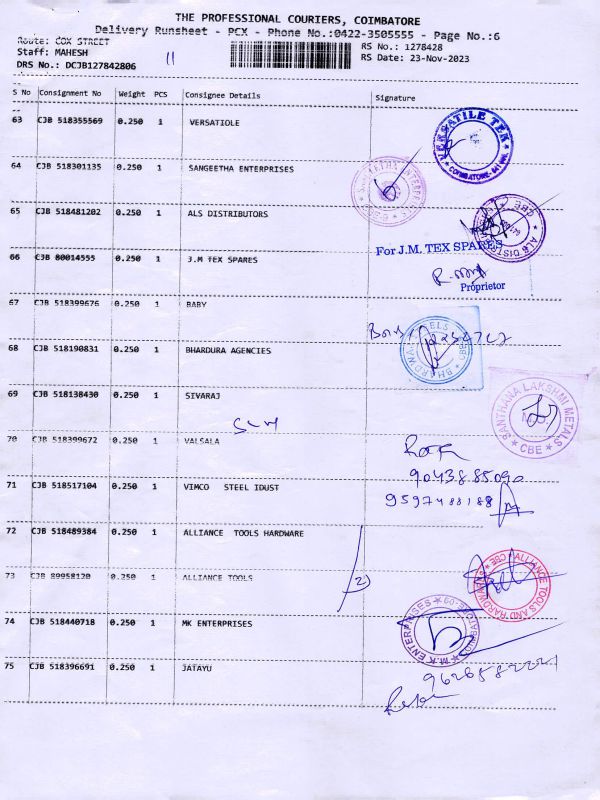 THE PROFESSIONAL COURIERS, COIMBATORE
Delivery Runsheet - PCX - Phone No.:0422-3505555 - Page No.:6
Route: COX STREET
RS No.: 1278428
Staff: MAHESH
11
RS Date: 23-Nov-2023
DRS No.: DCJB127842806
S No Consignment No Weight PCS Consignee Details Signature
63 CJB 518355569 0.250 1 VERSATIOLE
VERSATILE TEK
64 CJB 518301135 0.250 1 SANGEETHA ENTERPRISES
65 CJB 518481202 0.250 1 ALS DISTRIBUTORS
For J.M. TEX SPARES
66 CJB 80014555 0.250 1 J.M TEX SPARES
Proprietor
67 CJB 518399676 0.250 1 BABY
68 CJB 518190831 0.250 1 BHARDURA AGENCIES
69 CJB 518138430 0.250 1 SIVARAJ
SANTHANA LAKSHMI METALS
CBE
70 CJB 518399672 0.250 1 VALSALA
71 CJB 518517104 0.250 1 VIMCO STEEL IDUST
72 CJB 518489384 0.250 1 ALLIANCE TOOLS HARDWARE
73 CJB 89958120 0.250 1 ALLIANCE TOOLS
ALLIANCE TOOLS AND HARDWARE
CBE
74 CJB 518440718 0.250 1 MK ENTERPRISES
M.K ENTERPRISES
75 CJB 518396691 0.250 1 JATAYU